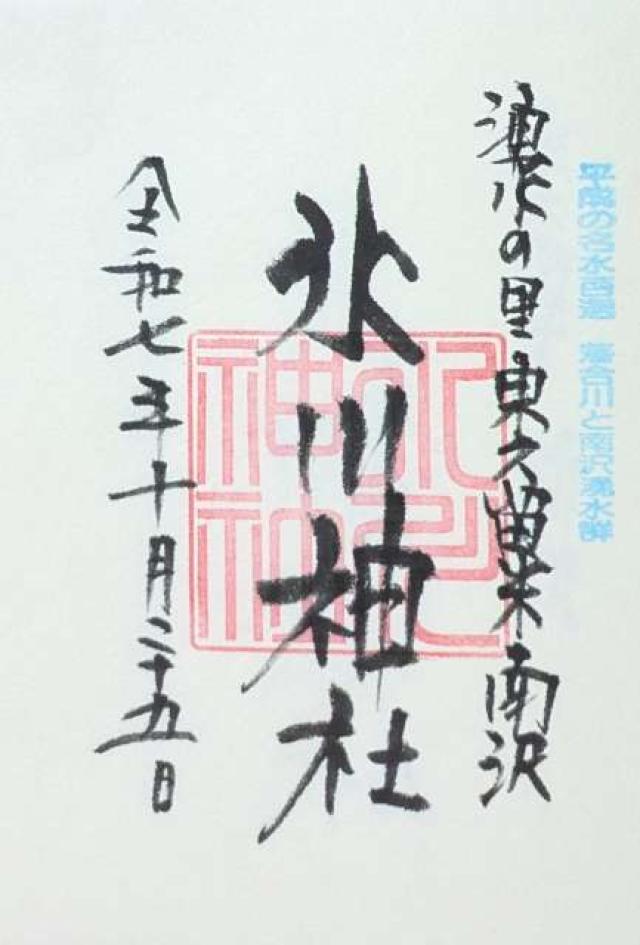 平成の名水百選 落合川と南沢湧水群
湧水の里東久留米南沢
氷川神社
令和七年十月二十九日